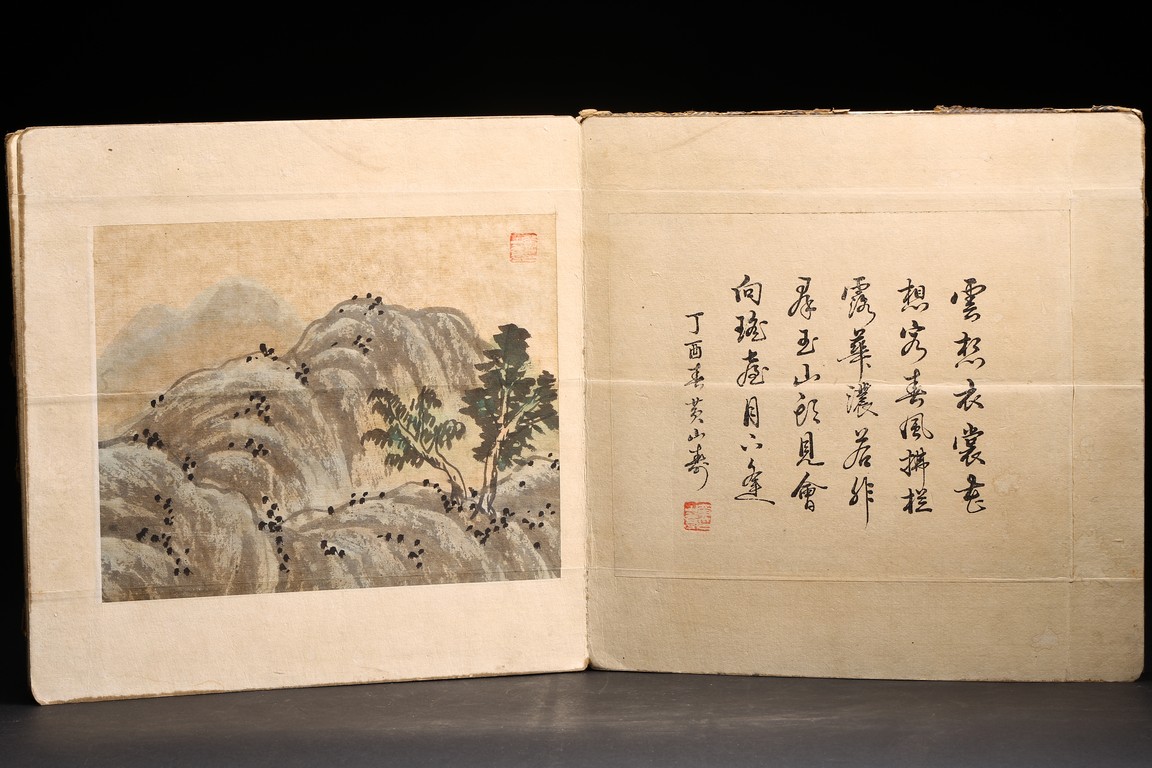 雲想衣裳花
想容春風拂栏
露華濃若非
群玉山頭見會
向瑤臺月下逢
丁酉春黄山壽